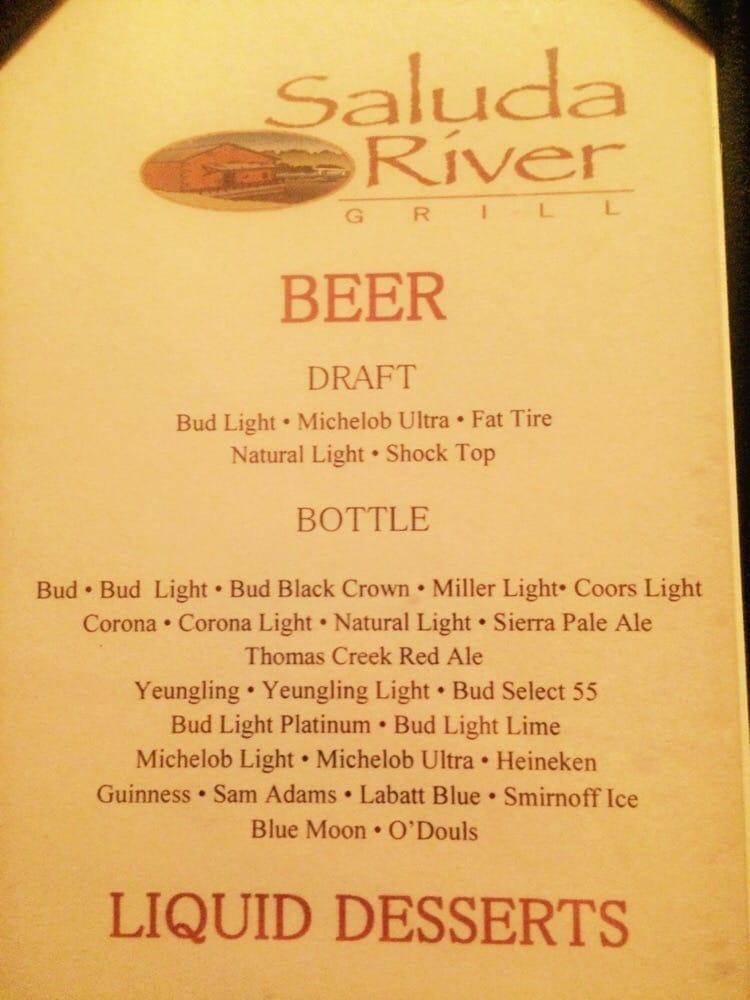 Saluda
River
GRILL
BEER
DRAFT
Bud Light • Michelob Ultra • Fat Tire
Natural Light • Shock Top
BOTTLE
Bud • Bud Light • Bud Black Crown • Miller Light• Coors Light
Corona • Corona Light • Natural Light • Sierra Pale Ale
Thomas Creek Red Ale
Yeungling • Yeungling Light • Bud Select 55
Bud Light Platinum • Bud Light Lime
Michelob Light • Michelob Ultra • Heineken
Guinness • Sam Adams • Labatt Blue • Smirnoff Ice
Blue Moon • O'Douls
LIQUID DESSERTS